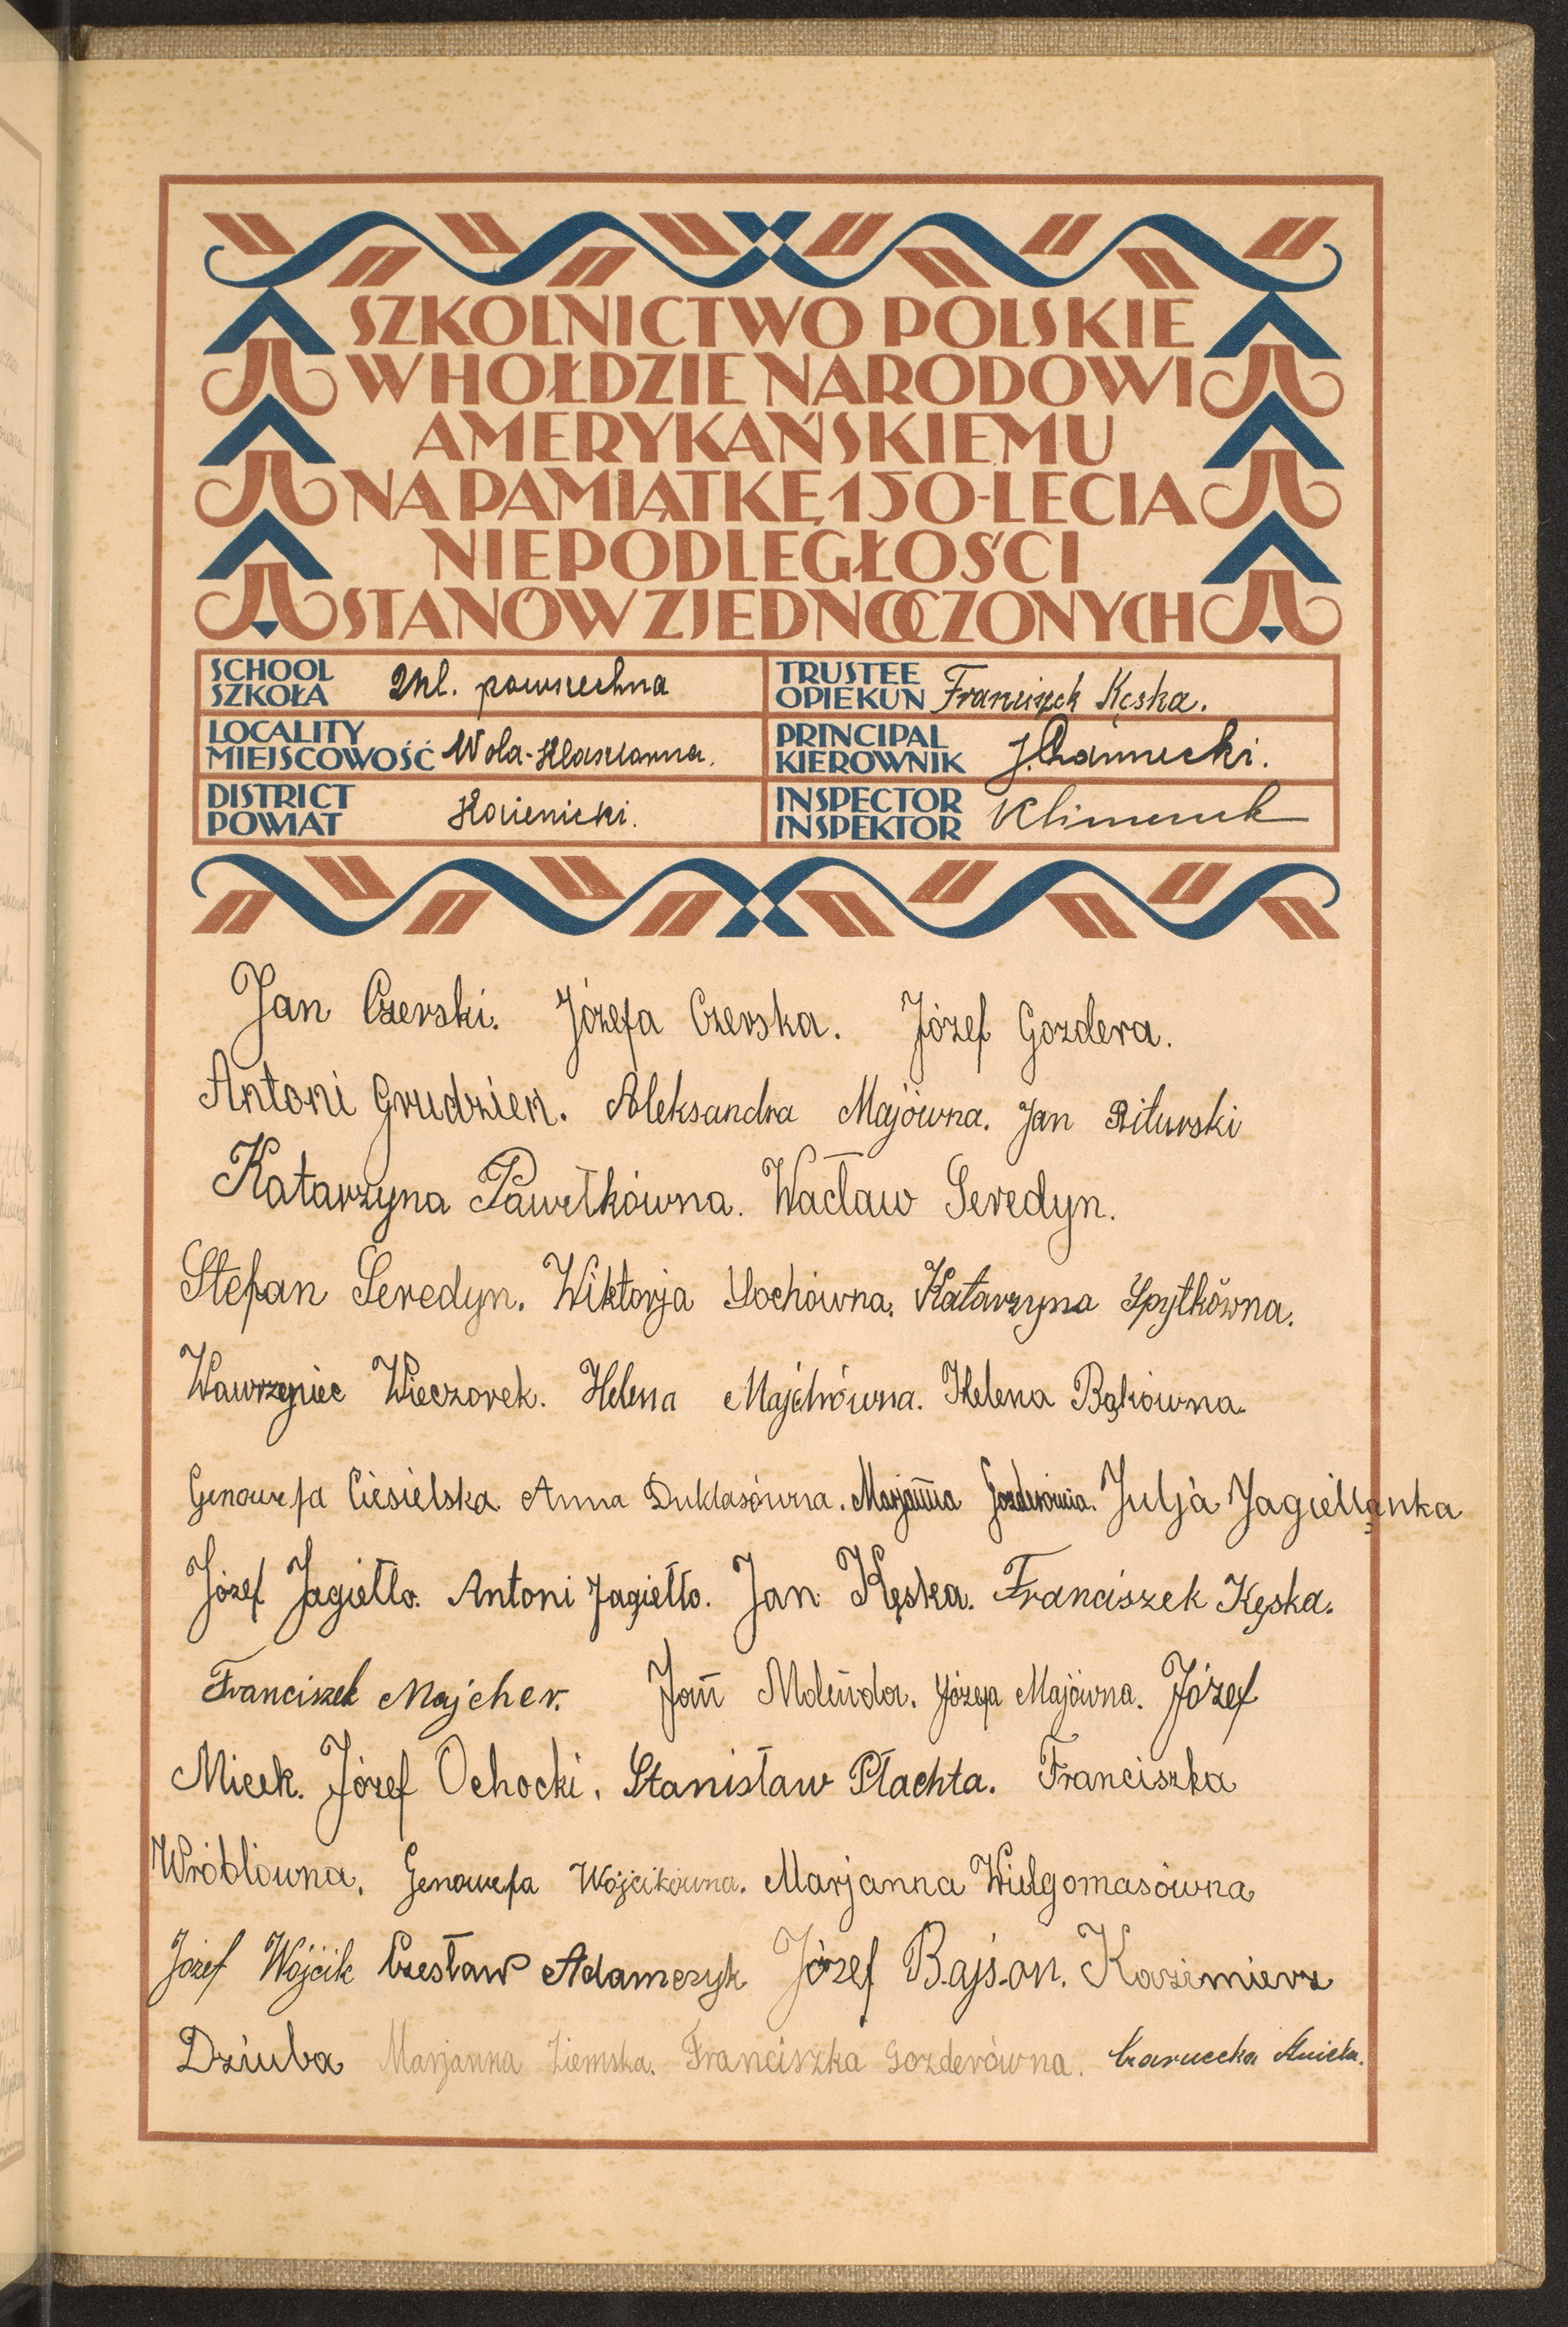 SZKOLNICTWO POLSKIE
W HOŁDZIE NARODOWI
AMERYKAŃSKIEMU
NA PAMIĄTKĘ 150-LECIA
NIEPODLEGŁOŚCI
STANÓW ZJEDNOCZONYCH
SCHOOL SZKOŁA 2kl. powszechna
TRUSTEE OPIEKUN Franciszek Kęska.
LOCALITY MIEJSCOWOŚĆ Wola-Klasztorna.
PRINCIPAL KIEROWNIK
DISTRICT POWIAT Kozienicki.
INSPECTOR INSPEKTOR
Jan Czerski. Józefa Czerska. Józef Gozdera.
Antoni Grudzien. Aleksandra Majówna. Jan
Katarzyna Pawełkówna. Wacław Seredyn.
Stefan Seredyn. Wiktorja Sochówna. Katarzyna Spytkówna.
Wawrzyniec Wieczorek. Helena Majchrówna. Helena Bąkówna.
Genowefa Ciesielska Anna Duklasówna. Marjanna Gozderówna. Julja Jagiellanka
Józef Jagiełło. Antoni Jagiełło. Jan Kęska. Franciszek Kęska.
Franciszek Majcher. Jan Molenda. Józefa Majówna. Józef
Micek. Józef Ochocki. Stanisław Płachta. Franciszka
Wróblówna. Genowefa Wójcikówna. Marjanna Wielgomasówna
Józef Wójcik Czesław Adamczyk Józef Bajson. Kazimierz
Dziuba Marjanna Ziemska. Franciszka Gozderówna. Czarnecka Aniela.